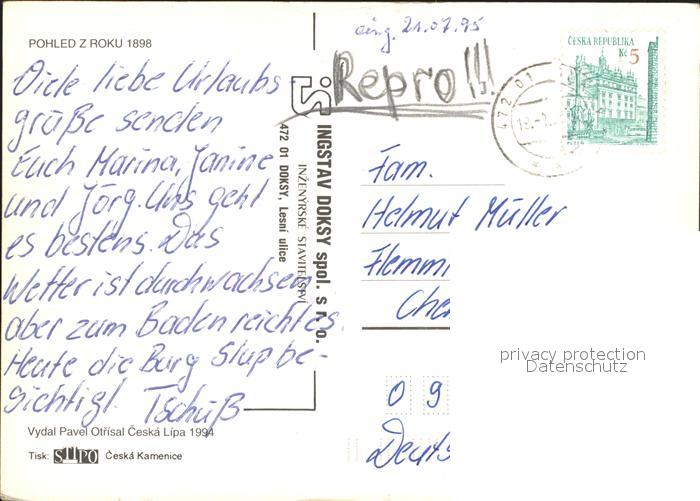 POHLED Z ROKU 1898
eing. 21.07.95
Repro!!!
ČESKÁ REPUBLIKA
Kč 5
472 01
Viele liebe Urlaubs
grüße senden
Euch Marina, Janine
und Jörg. Uns geht
es bestens. Das
Wetter ist durchwachsen
aber zum Baden reicht es.
Heute die Burg Slup be-
sichtigt. Tschüß
INGSTAV DOKSY spol. s r. o.
INŽENÝRSKÉ STAVITELSTVÍ
472 01 DOKSY, Lesní ulice
Fam.
Helmut Müller
Flemmi
Che
0 9
Deuts
privacy protection
Datenschutz
Vydal Pavel Otřísal Česká Lípa 1994
Tisk: STIPO Česká Kamenice